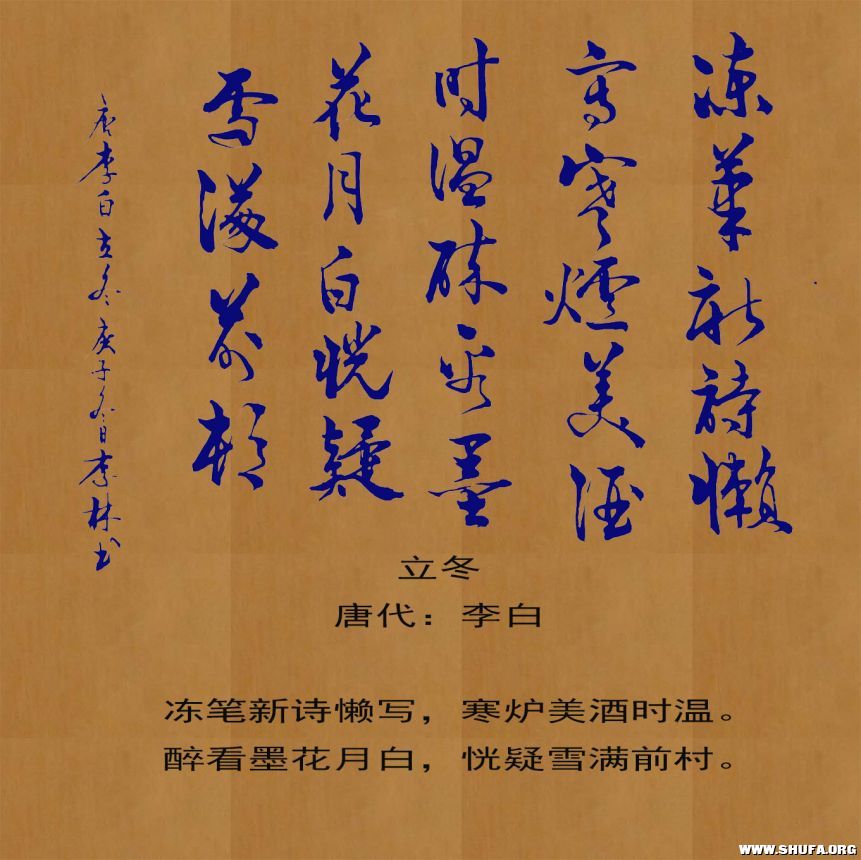 冻筆新詩懒
写寒爐美酒
时温醉看墨
花月白恍疑
雪满前邨
唐李白立冬庚子冬日李林书
立冬
唐代：李白
冻笔新诗懒写，寒炉美酒时温。
醉看墨花月白，恍疑雪满前村。
WWW.SHUFA.ORG